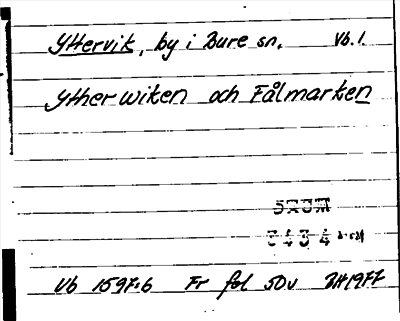 Yttervik, by i Bure sn. Vb. 1.
Ytherwiken och Fålmarken
5434
Vb 1597:6 Fr fol 50v BH1977